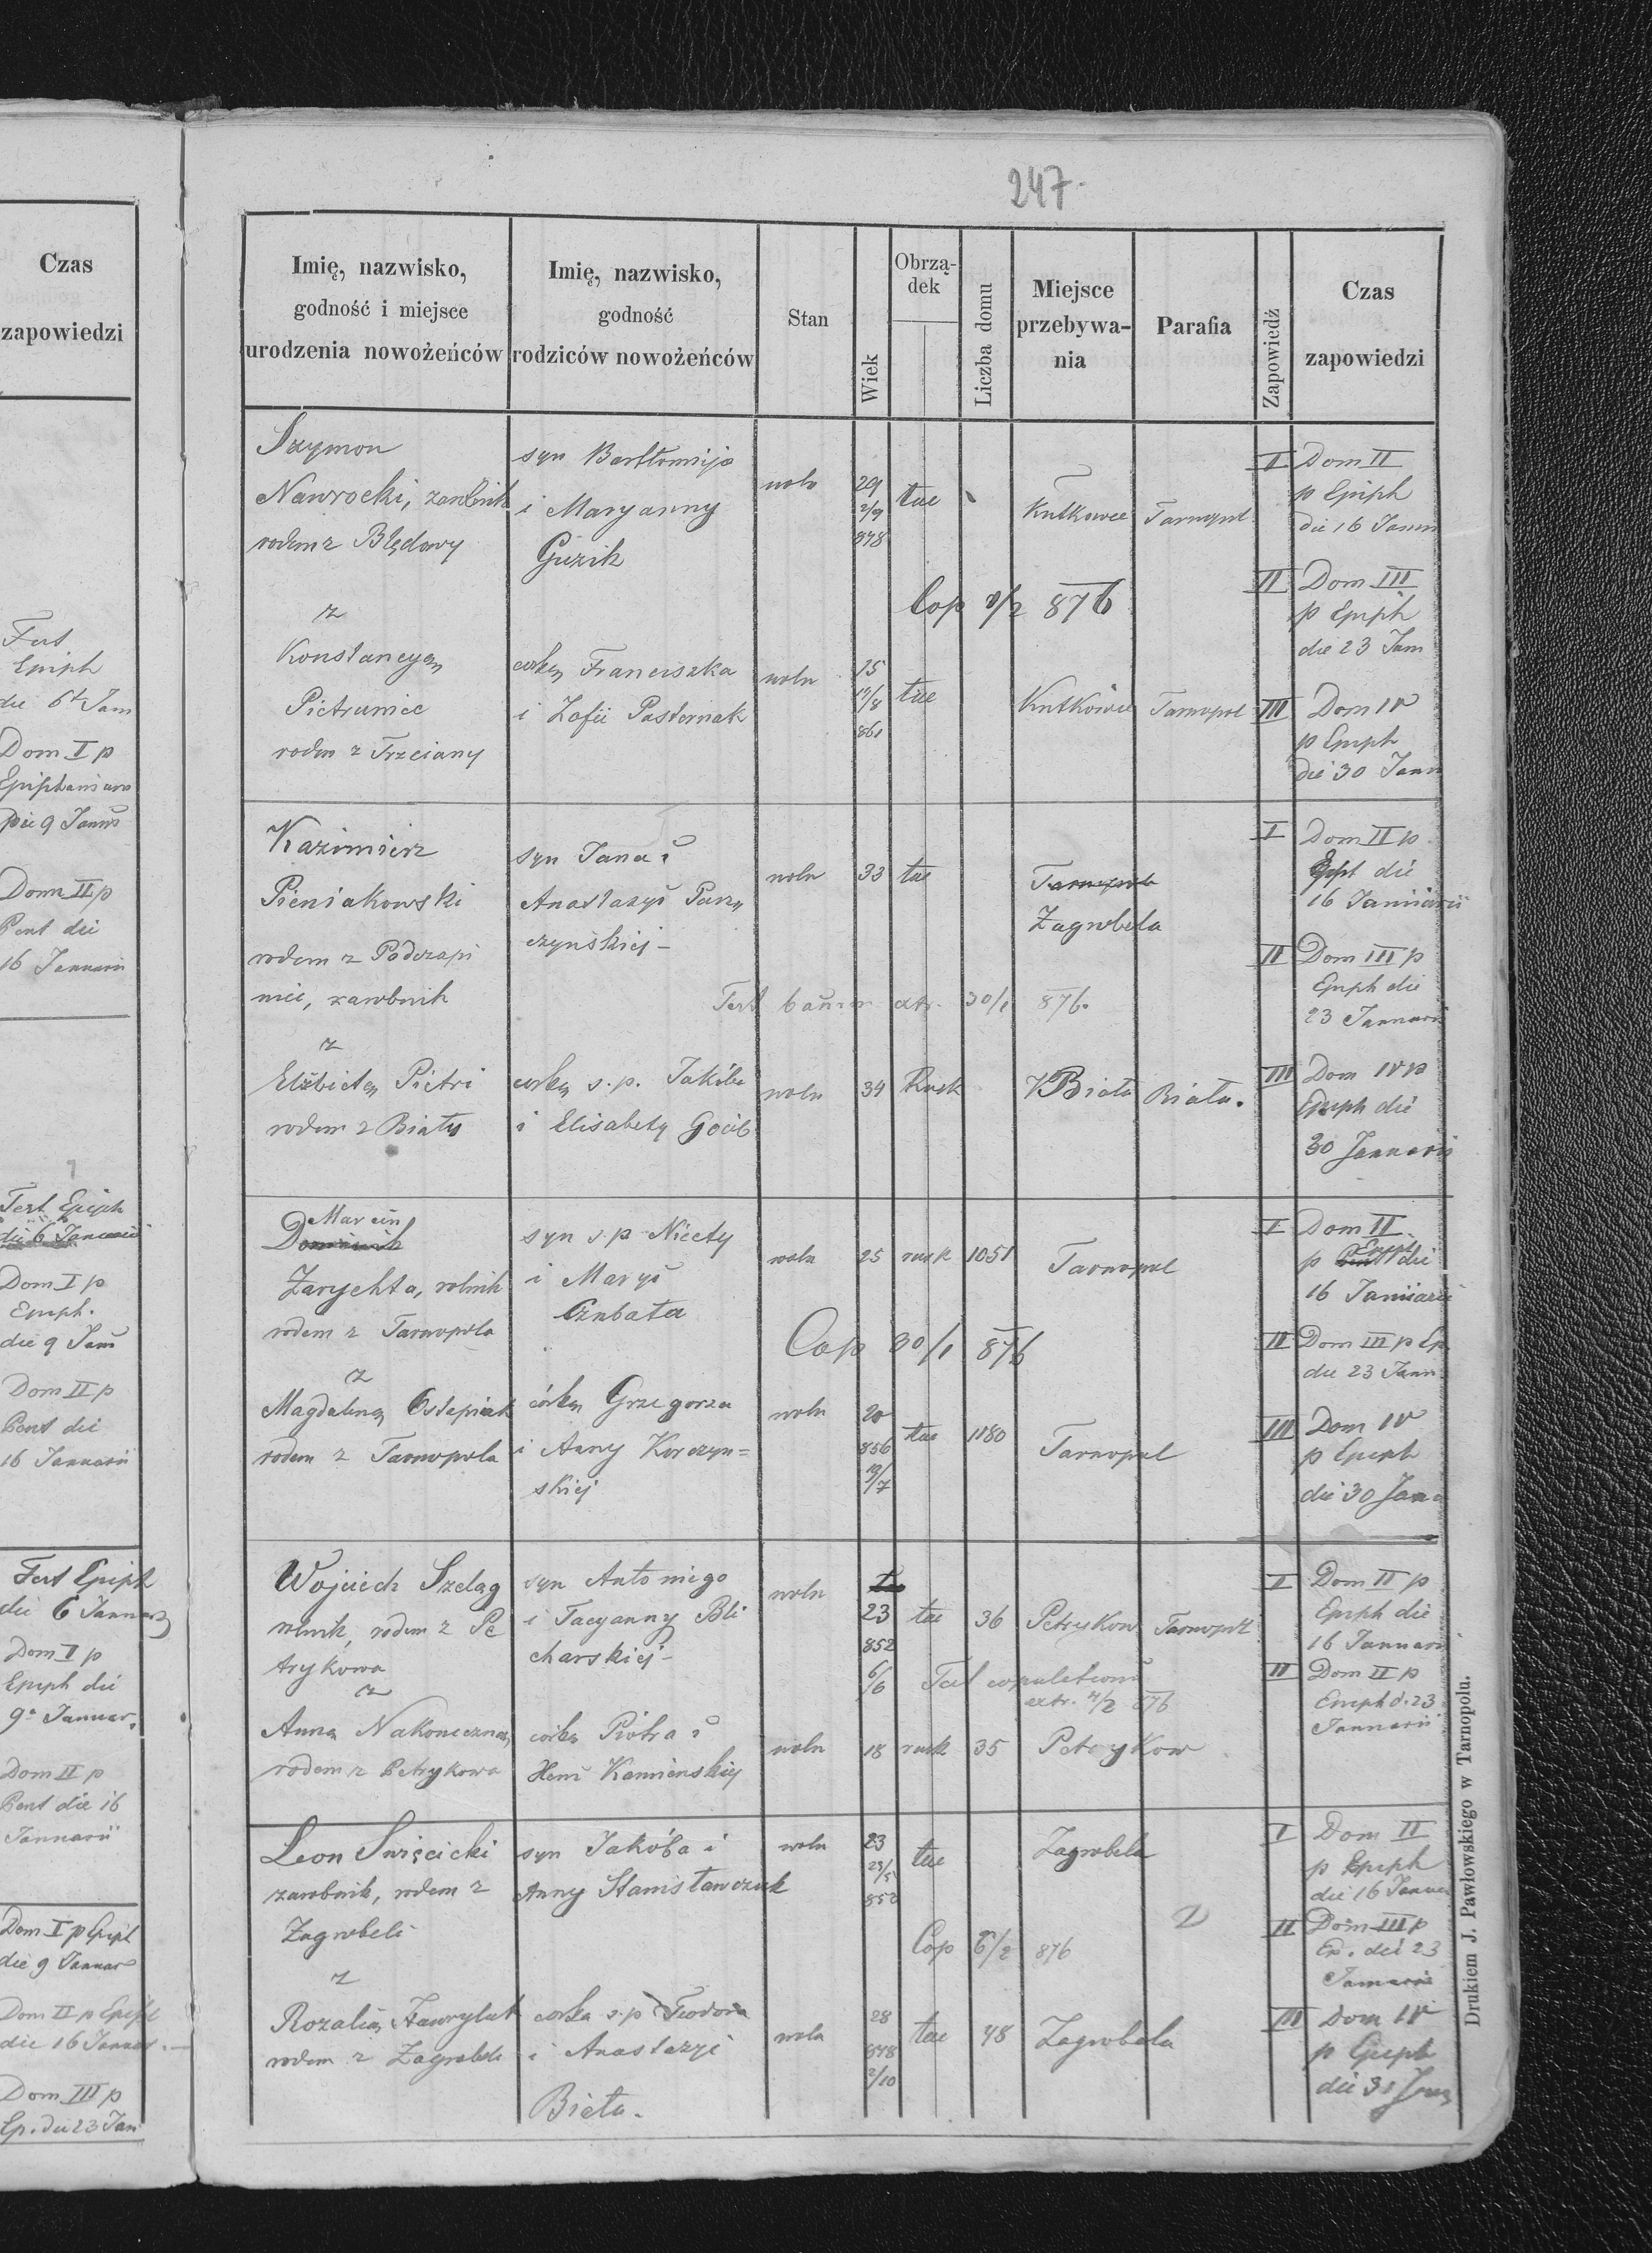 247.
Czas
zapowiedzi
Fest
Epiph
die 6t Jan
Dom I p
die 9
Dom II p
Pent die
16 Januarii
Fest Epiph
die 6 Januarii
Dom I p
Epiph.
die 9 Jan
Dom II p
Pent die
16 Januarii
Fest Epiph
die 6
Dom I p
Epiph die
9a Januar.
Dom II p
Pent die 16
Januarii
Dom I p Epiph
die 9 Januar
Dom II p Epiph
die 16
Dom III p
Ep. die 23 Jan
Imię, nazwisko,
godność i miejsce
urodzenia nowożeńców
Imię, nazwisko,
godność
rodziców nowożeńców
Stan
Wiek
Obrzą-
dek
Liczba domu
Miejsce
przebywa-
nia
Parafia
Zapowiedź
Czas
zapowiedzi
Szymon
Nawrocki, zarobnik
rodem z Błędowy
syn Bartłomieja
i Maryanny
Guzik
woln
29
2/9
Kutkowce
Tarnopol
I Dom II
p Epiph
die 16 Januar
Cop 876
II Dom III
p Epiph
die 23 Jan
z
Konstancyą
Pietruniec
rodem z Trzciany
corką Franciszka
i Zofii Pasternak
woln
17/8
Kutkowce
Tarnopol
III Dom IV
p Epiph
die 30 Jann
Kazimierz
Pieniakowski
rodem z Podczapi
niec, zarobnik
syn Jana i
czyńskiej -
woln
33
Tarnopola
Zagrobela
I Dom II p
die
16 Januarii
II Dom III p
Epiph die
23 Januarii
Test extr. 30/1 876
z
Elżbietą Pietri
rodem z Biały
corką s.p. Jakóba
i Elisabety
woln
34
Rusk
Biała
Biała.
III Dom IV p
Epiph die
30 Januarii
Marcin
Dominik
Zarychta, rolnik
rodem z Tarnopola
syn s.p
i Maryi
woln
25
rusk
1051
Tarnopol
I Dom II
p Epiph die
16 Januarii
Cop 30/1 876
II Dom III p Ep
die 23 Jann
z
Magdaleną Ostapiak
rodem z Tarnopola
córką Grzegorza
i Anny Korczyn=
skiej
woln
20
856
19/7
1180
Tarnopol
III Dom IV
p Epiph
die 30
Wojciech Szeląg
rolnik, rodem z Pe
trykowa
syn Antoniego
i Tacyanny Bli
charskiej -
woln
23
852
6/6
36
Petrykow
Tarnopol
I Dom II p
Epiph die
16 Januarii
Test
extr. 876
II Dom II p
Epiph d. 23
Januarii
z
Anną Nakoneczną
rodem z Petrykowa
corką Piotra i
Kamienskiej
woln
18
rusk
35
Petrykow
Leon Święcicki
zarobnik, rodem z
Zagrobeli
syn Jakóba i
Anny Stanisławczuk
woln
23
23/5
852
Zagrobela
I Dom II
p Epiph
die 16
Cop 6/2 876
II Dom III p
Ep. die 23
Januarii
z
Rozalią Hawryluk
rodem z Zagrobeli
corka s.p Teodora
i Anastazyi
Bieta.
woln
28
848
2/10
48
Zagrobela
III Dom IV
p Epiph
Drukiem J. Pawłowskiego w Tarnopolu.